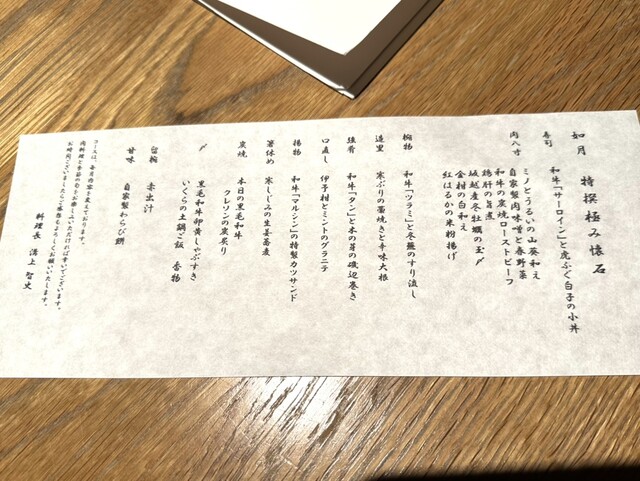 如月 特撰極み懐石
寿司 和牛「サーロイン」と虎ふぐ白子の小丼
肉八寸 ミノとうるいの山葵和え
自家製肉味噌と春野菜
和牛の炭焼ローストビーフ
鶏肝の旨煮
坂越産冬牡蠣の玉〆
金柑の白和え
紅はるかの米粉揚げ
椀物 和牛「ツラミ」と冬蕪のすり流し
造里 寒ぶりの藁焼きと辛味大根
強肴 和牛「タン」と木の芽の磯辺巻き
口直し 伊予柑とミントのグラニテ
揚物 和牛「マルシン」の特製カツサンド
箸休め 寒しじみの生姜蕎麦
炭焼 本日の黒毛和牛
クレソンの炭炙り
〆 黒毛和牛卵黄しゃぶすき
いくらの土鍋ご飯 香物
留椀 赤出汁
甘味 自家製わらび餅
コースは、毎月内容を変えております。
肉料理と季節の旬をお楽しみいただければ幸いでございます。
お時間ございましたらご来店をよろしくお願いいたします。
料理長 溝上 智史